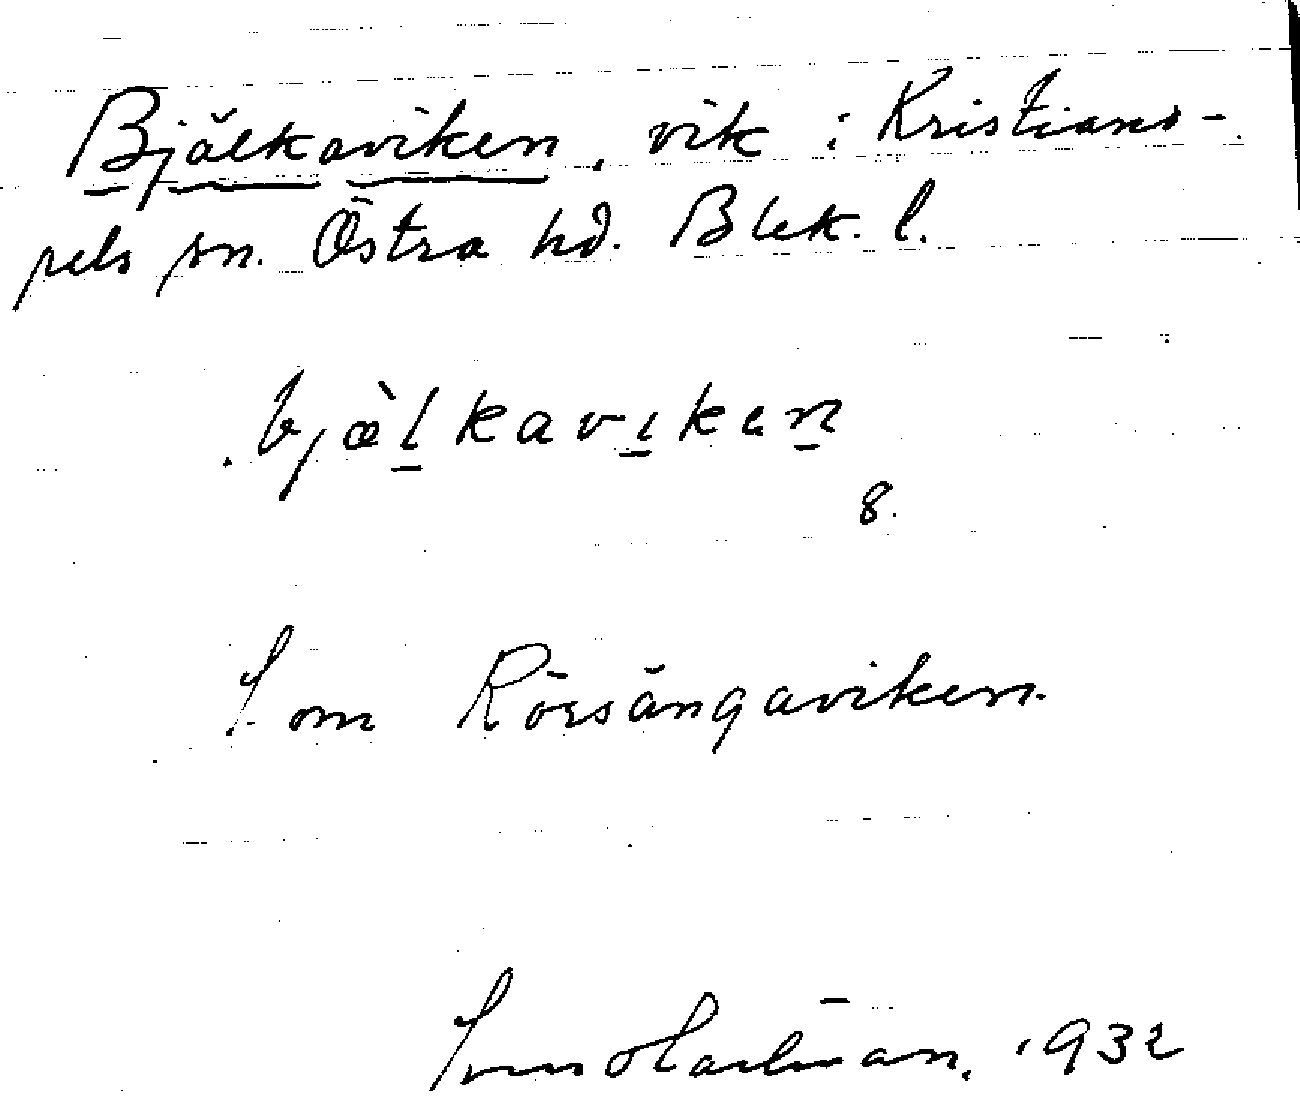 Bjälkaviken, vik i Kristiano-
pels sn. Östra hd. Blek. l.
bjæ̀lkaviken
8.
S. om Rörsängaviken.
Sven Hartman. 1932